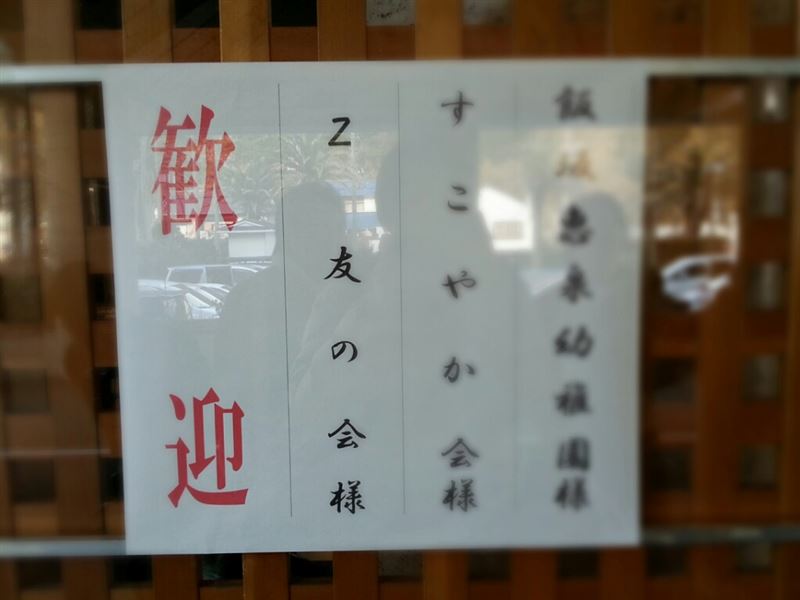 飯坂恵泉幼稚園様
すこやか会様
Z友の会様
歓迎